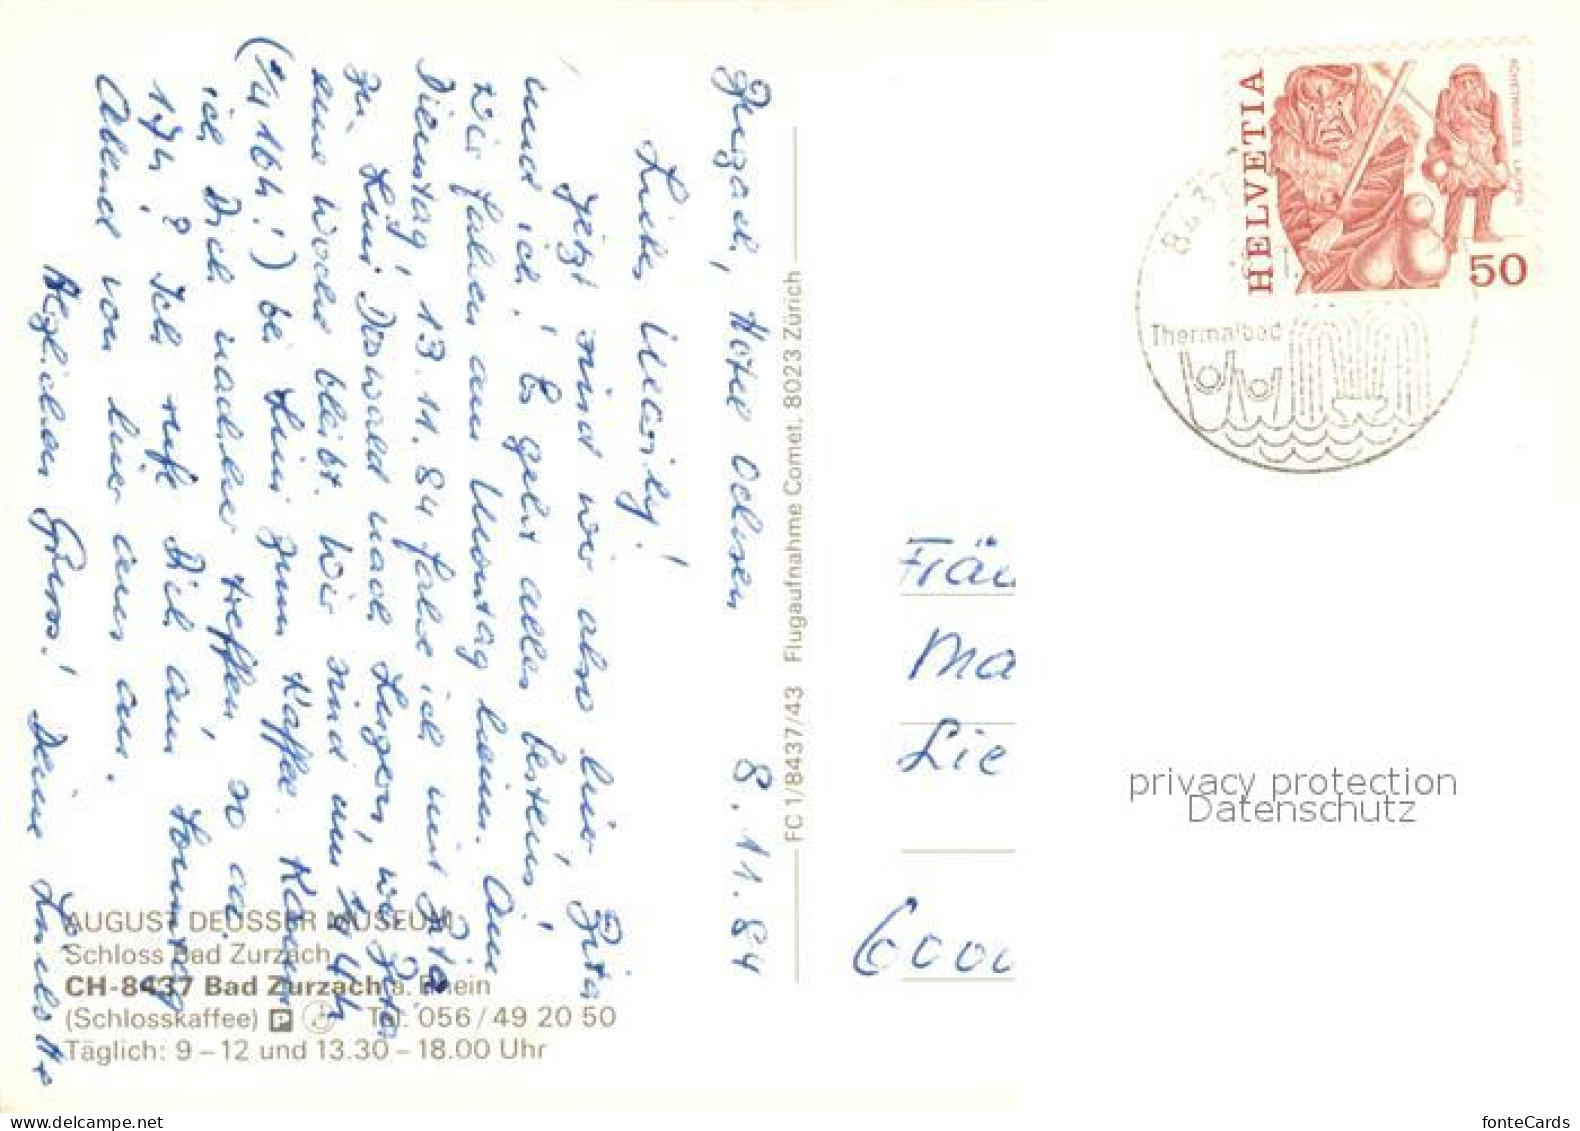 Zurzach, Hotel Ochsen 8.11.84
Liebes Marily!
Jetzt sind wir also hier, Zita
und ich! Es geht alles bestens!
Wir fahren am Montag heim. Am
Dienstag, 13.11.84 fahre ich mit Zita
zu Luzi Oswald nach Luzern, wo Zita
eine Woche bleibt. Wir sind um 14h
(1/4 16h!) bei Luzi zum Kaffee. Kann
ich Dich nachher treffen, so ca
17h? Ich rufe Dich am Sonntag
Abend von hier aus an.
Herzlichen Gruss! Deine
FC 1/8437/43 Flugaufnahme Comet, 8023 Zürich
AUGUST DEUSSER MUSEUM
Schloss Bad Zurzach
CH-8437 Bad Zurzach a. Rhein
(Schlosskaffee) P Tel. 056/49 20 50
Täglich: 9 – 12 und 13.30 – 18.00 Uhr
HELVETIA
50
8437
Thermalbad
Fräu
Ma
Lie
6000
privacy protection
Datenschutz
fonteCards